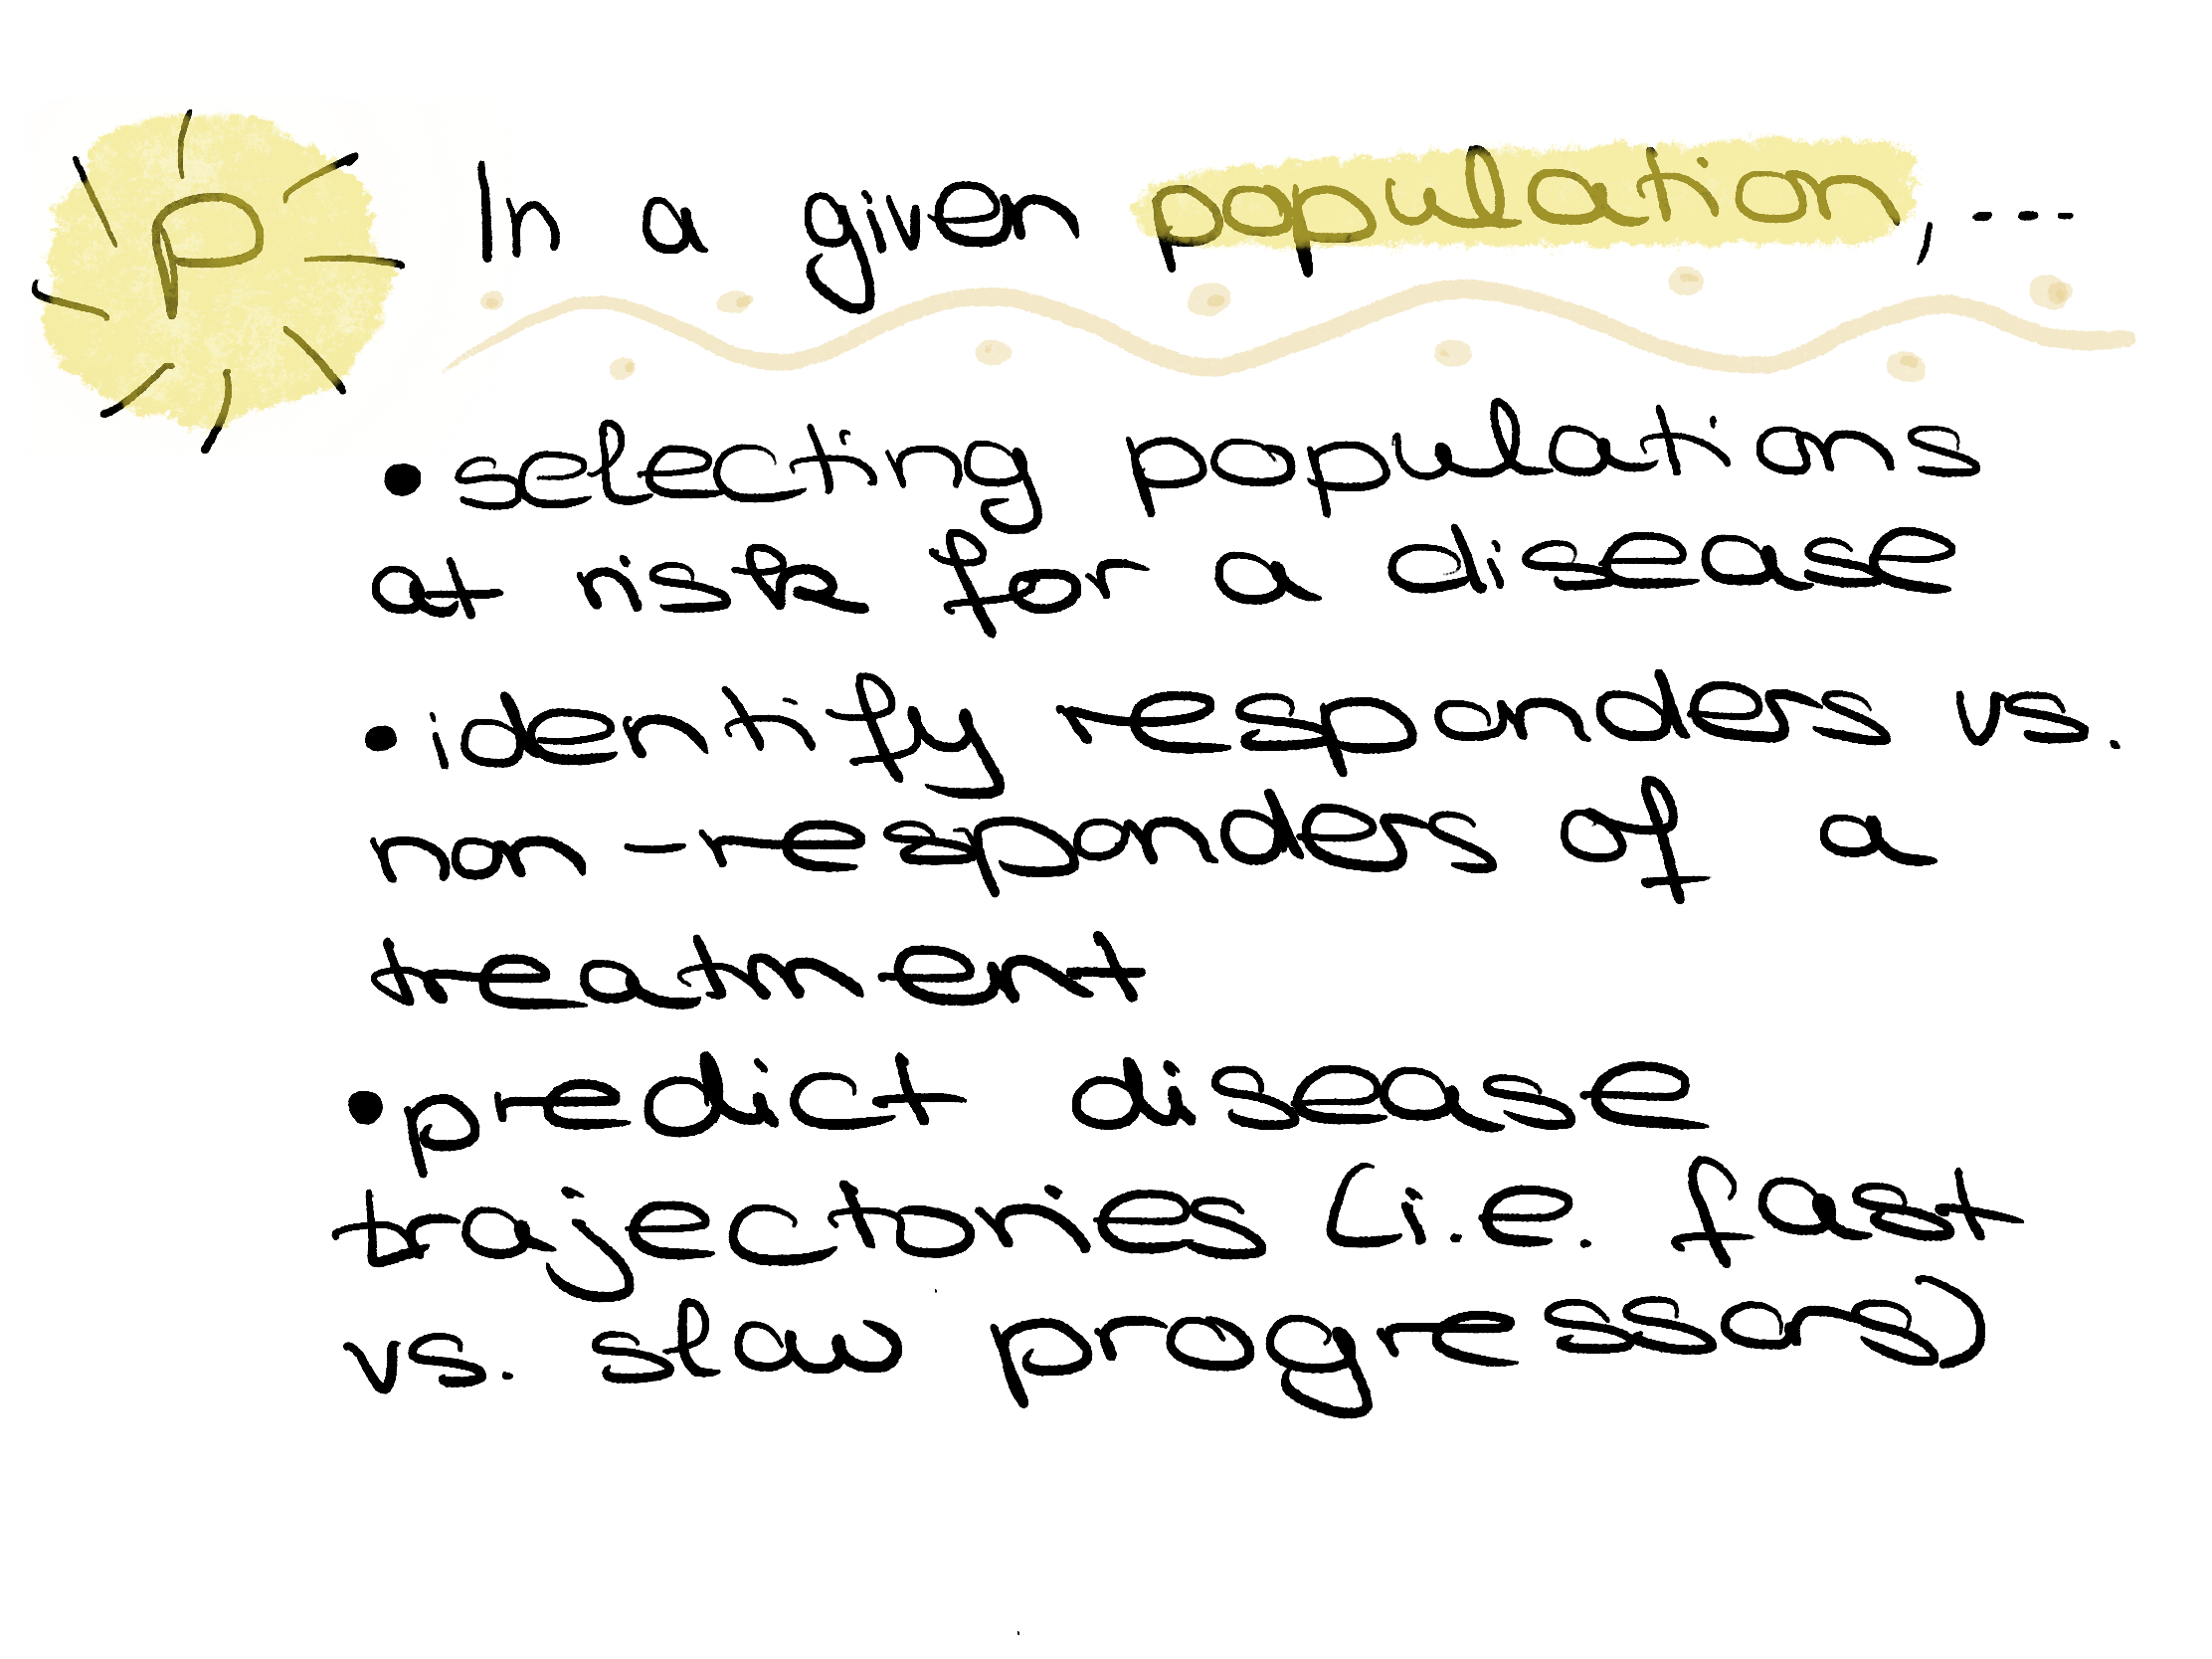 P
In a given population, ---
• selecting populations
at risk for a disease
• identify responders vs.
non-responders of a
treatment
• predict disease
trajectories (i.e. fast
vs. slow progressors)